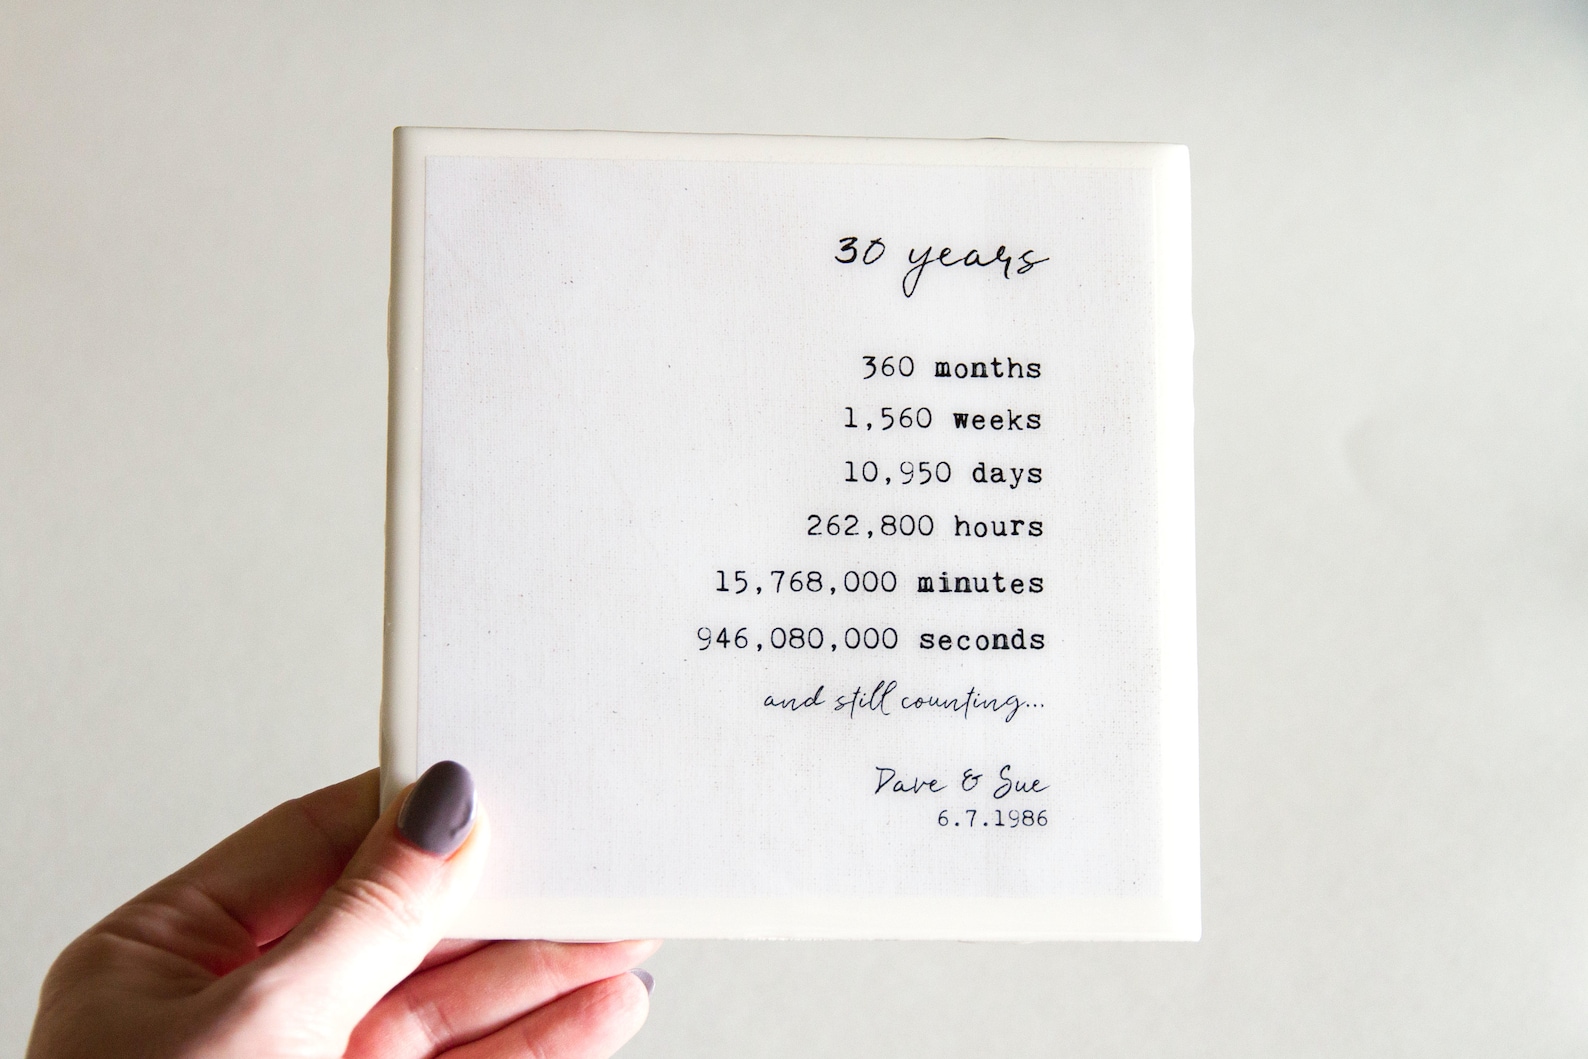 30 years
360 months
1,560 weeks
10,950 days
262,800 hours
15,768,000 minutes
946,080,000 seconds
and still counting...
Dave & Sue
6.7.1986